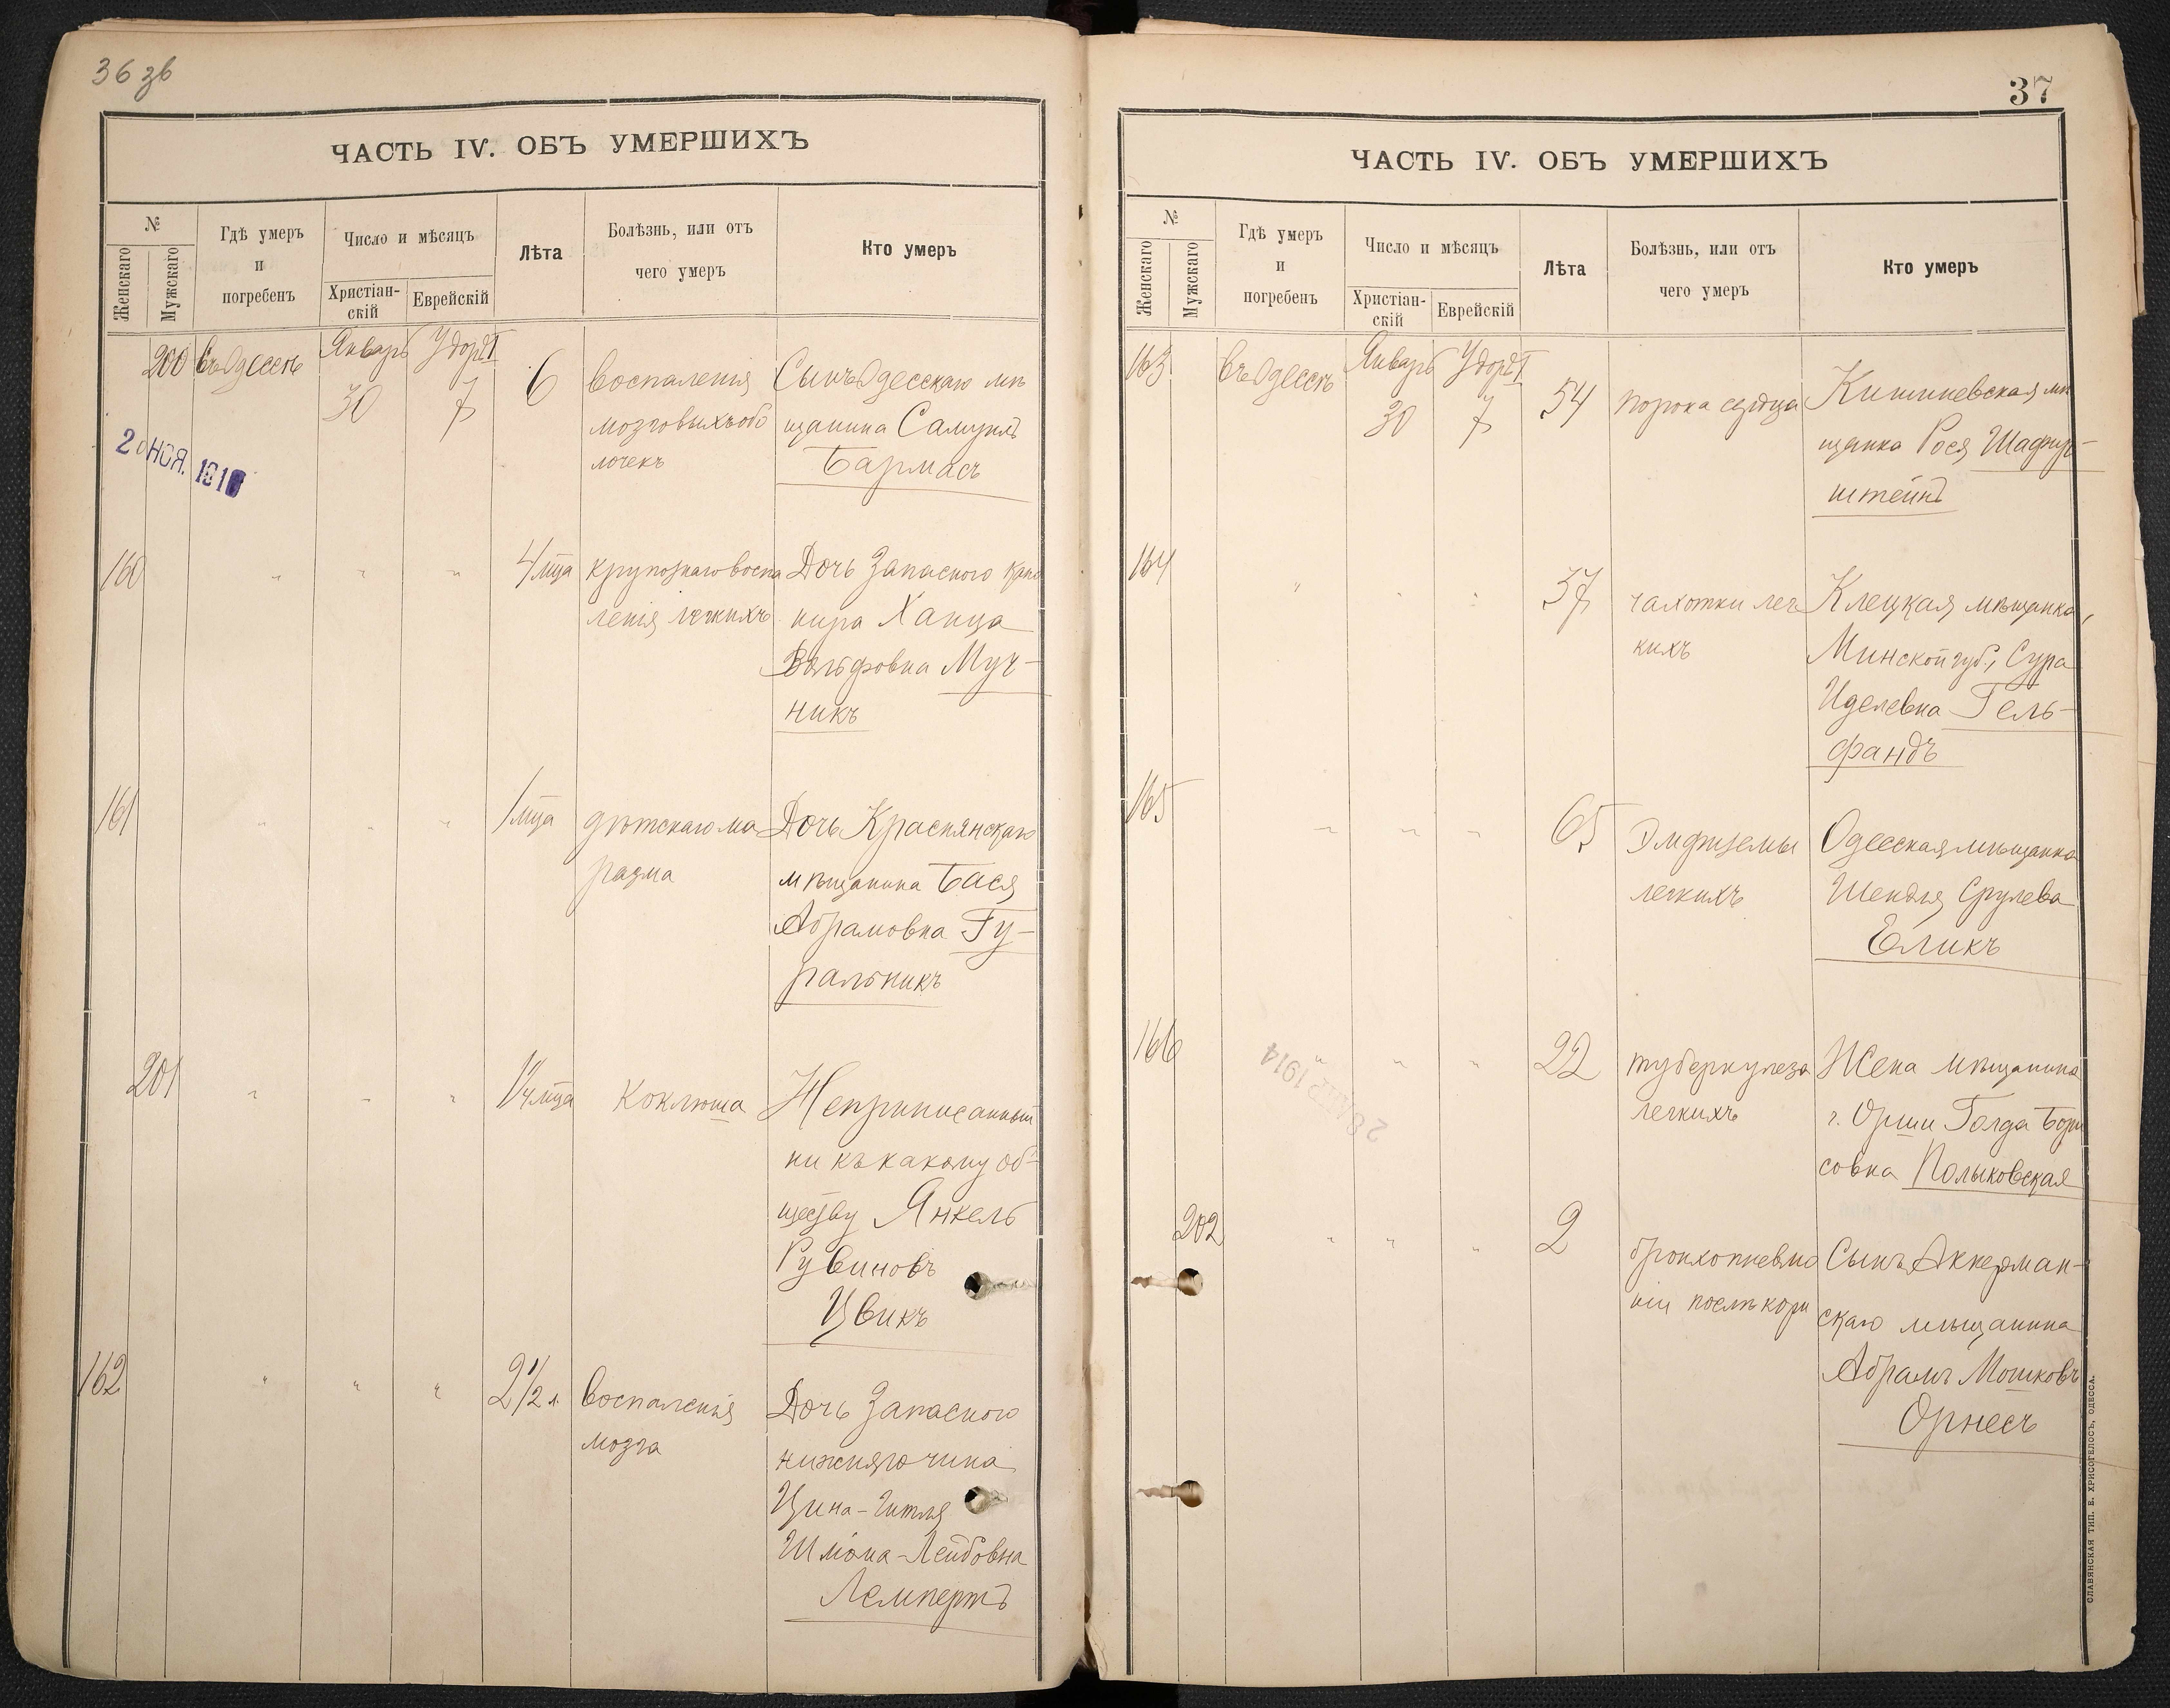 36 зв
ЧАСТЬ IV. ОБЪ УМЕРШИХЪ
№
Женскаго
Мужскаго
Гдѣ умеръ
и
погребенъ
Число и мѣсяцъ
Христіан-
скій
Еврейскій
Лѣта
Болѣзнь, или отъ
чего умеръ
Кто умеръ
200 въ Одессѣ Январь 30 7 6
воспаленія
мозговыхъ обо
лочекъ
Сынъ Одесскаго мѣ
щанина Самуилъ
Бармасъ
2 НОЯ. 191
160 " " " 4 мца
крупознаго воспа
ленія легкихъ
Дочь Запасного
нира Ханца
Вольфовна Муч-
никъ
161 " " " 1 мца
дѣтскаго ма
разма
Дочь Краснянскаго
мѣщанина Бася
Абрамовна Гу-
ральникъ
201 " " " мца
Коклюша
Неприписанный
ни къ какому об-
ществу Янкель
Рувиновъ
Цвикъ
162 " " " 2 1/2 л.
воспаленія
мозга
Дочь Запасного
нижняго чина
Цина-Гитля
Шмона-Лейбовна
Лемпертъ
37
ЧАСТЬ IV. ОБЪ УМЕРШИХЪ
№
Женскаго
Мужскаго
Гдѣ умеръ
и
погребенъ
Число и мѣсяцъ
Христіан-
скій
Еврейскій
Лѣта
Болѣзнь, или отъ
чего умеръ
Кто умеръ
163 въ Одессѣ Январь 30 7 54
порока сердца
Кишиневская мѣ
щанка Рося Шафир-
штейнъ
164 " " " 37
чахотки лег
кихъ
Клецкая мѣщанка,
Минской губ., Сура
Иделевна Гель-
фандъ
165 " " " 65
Эмфиземы
легкихъ
Одесская мѣщанка
Шендля Срулева
Еликъ
166 " " " 22
туберкулеза
легкихъ
Жена мѣщанина
г. Орши Голда Бори
совна Полыковская
1914
202 " " " 2
бронхопневмо
ніи послѣ кори
Сынъ Аккерман-
скаго мѣщанина
Абрамъ Мошковъ
Орнесъ
СЛАВЯНСКАЯ ТИП. Е. ХРИСОГЕЛОСЪ, ОДЕССА.